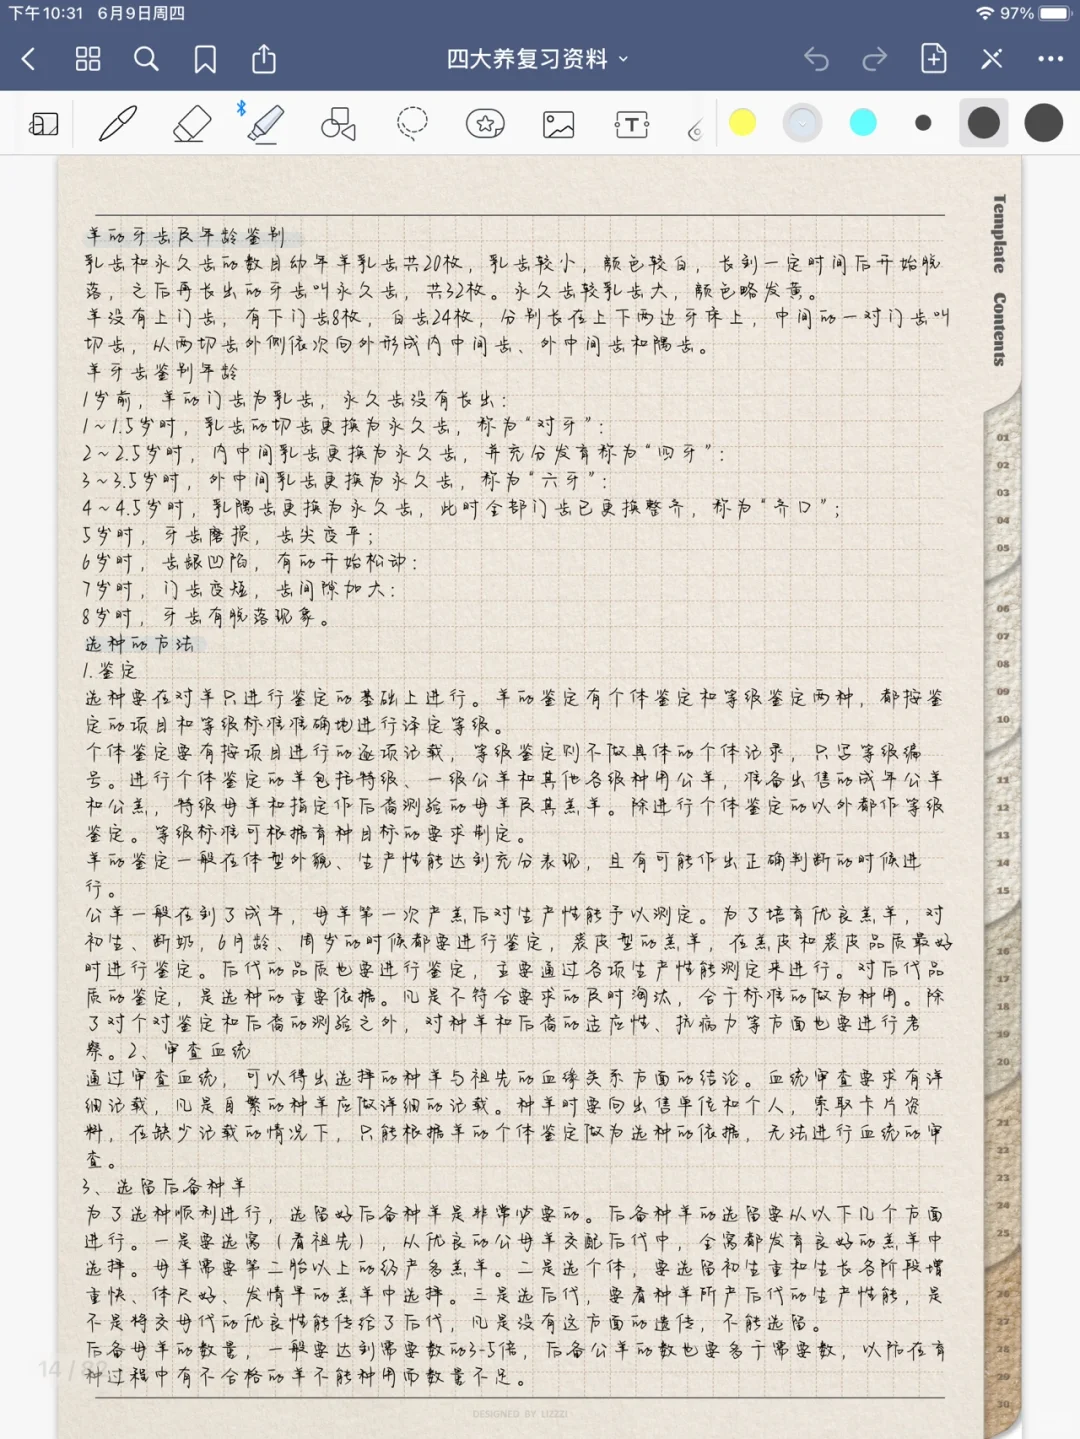 下午10:31 6月9日周四
97%
四大养复习资料
T
Template Contents
羊的牙齿及年龄鉴别
乳齿和永久齿的数目幼年羊乳齿共20枚，乳齿较小，颜色较白，长到一定时间后开始脱
落，之后再长出的牙齿叫永久齿，共32枚。永久齿较乳齿大，颜色略发黄。
羊没有上门齿，有下门齿8枚，臼齿24枚，分别长在上下两边牙床上，中间的一对门齿叫
切齿，从两切齿外侧依次向外形成内中间齿、外中间齿和隅齿。
羊牙齿鉴别年龄
1岁前，羊的门齿为乳齿，永久齿没有长出；
1~1.5岁时，乳齿的切齿更换为永久齿，称为“对牙”；
2~2.5岁时，内中间乳齿更换为永久齿，并充分发育称为“四牙”；
3~3.5岁时，外中间乳齿更换为永久齿，称为“六牙”；
4~4.5岁时，乳隅齿更换为永久齿，此时全部门齿已更换整齐，称为“齐口”；
5岁时，牙齿磨损，齿尖变平；
6岁时，齿龈凹陷，有的开始松动；
7岁时，门齿变短，齿间隙加大；
8岁时，牙齿有脱落现象。
选种的方法
1.鉴定
选种要在对羊只进行鉴定的基础上进行。羊的鉴定有个体鉴定和等级鉴定两种，都按鉴
定的项目和等级标准准确地进行评定等级。
个体鉴定要有按项目进行的逐项记载，等级鉴定则不做具体的个体记录，只写等级编
号。进行个体鉴定的羊包括特级、一级公羊和其他各级种用公羊，准备出售的成年公羊
和公羔，特级母羊和指定作后裔测验的母羊及其羔羊。除进行个体鉴定的以外都作等级
鉴定。等级标准可根据育种目标的要求制定。
羊的鉴定一般在体型外貌、生产性能达到充分表现，且有可能作出正确判断的时候进
行。
公羊一般在到了成年，母羊第一次产羔后对生产性能予以测定。为了培育优良羔羊，对
初生、断奶，6月龄、周岁的时候都要进行鉴定，裘皮型的羔羊，在羔皮和裘皮品质最好
时进行鉴定。后代的品质也要进行鉴定，主要通过各项生产性能测定来进行。对后代品
质的鉴定，是选种的重要依据。凡是不符合要求的及时淘汰，合于标准的做为种用。除
了对个对鉴定和后裔的测验之外，对种羊和后裔的适应性、抗病力等方面也要进行考
察。2、审查血统
通过审查血统，可以得出选择的种羊与祖先的血缘关系方面的结论。血统审查要求有详
细记载，凡是自繁的种羊应做详细的记载。种羊时要向出售单位和个人，索取卡片资
料，在缺少记载的情况下，只能根据羊的个体鉴定做为选种的依据，无法进行血统的审
查。
3、选留后备种羊
为了选种顺利进行，选留好后备种羊是非常必要的。后备种羊的选留要从以下几个方面
进行。一是要选窝（看祖先），从优良的公母羊交配后代中，全窝都发育良好的羔羊中
选择。母羊需要第二胎以上的经产多羔羊。二是选个体，要选留初生重和生长各阶段增
重快、体尺好、发情早的羔羊中选择。三是选后代，要看种羊所产后代的生产性能，是
不是将父母代的优良性能传给了后代，凡是没有这方面的遗传，不能选留。
后备母羊的数量，一般要达到需要数的3-5倍，后备公羊的数也要多于需要数，以防在育
种过程中有不合格的羊不能种用而数量不足。
14 / 88
DESIGNED BY LIZZZI
01
02
03
04
05
06
07
08
09
10
11
12
13
14
15
16
17
18
19
20
21
22
23
24
25
26
27
28
29
30